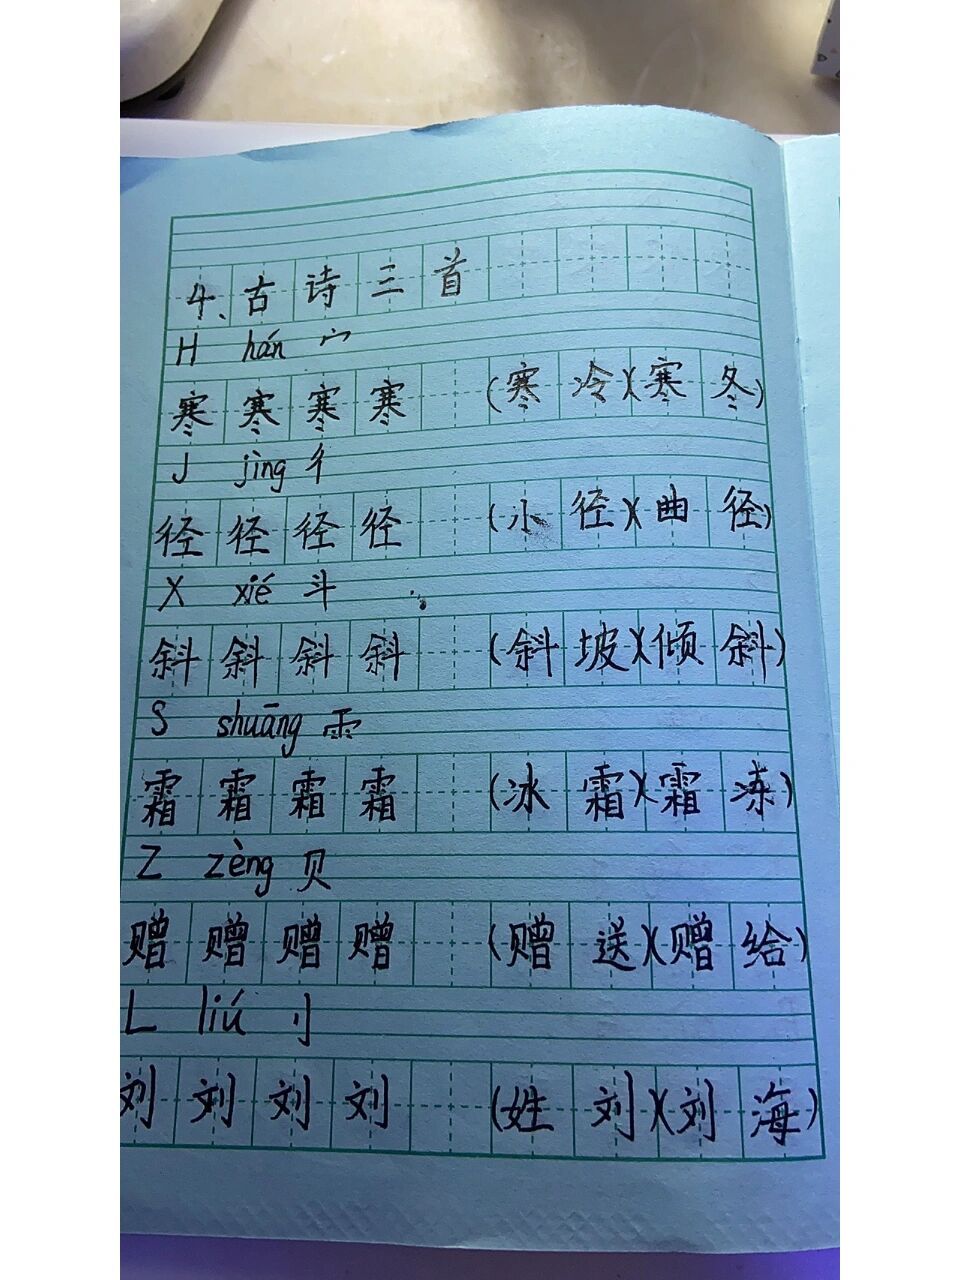 4、古诗三首
H hán 宀
寒寒寒寒(寒冷)(寒冬)
J jìng 彳
径径径径(小径)(曲径)
X xié 斗
斜斜斜斜(斜坡)(倾斜)
S shuāng 雨
霜霜霜霜(冰霜)(霜冻)
Z zèng 贝
赠赠赠赠(赠送)(赠给)
L liú 刂
刘刘刘刘(姓刘)(刘海)